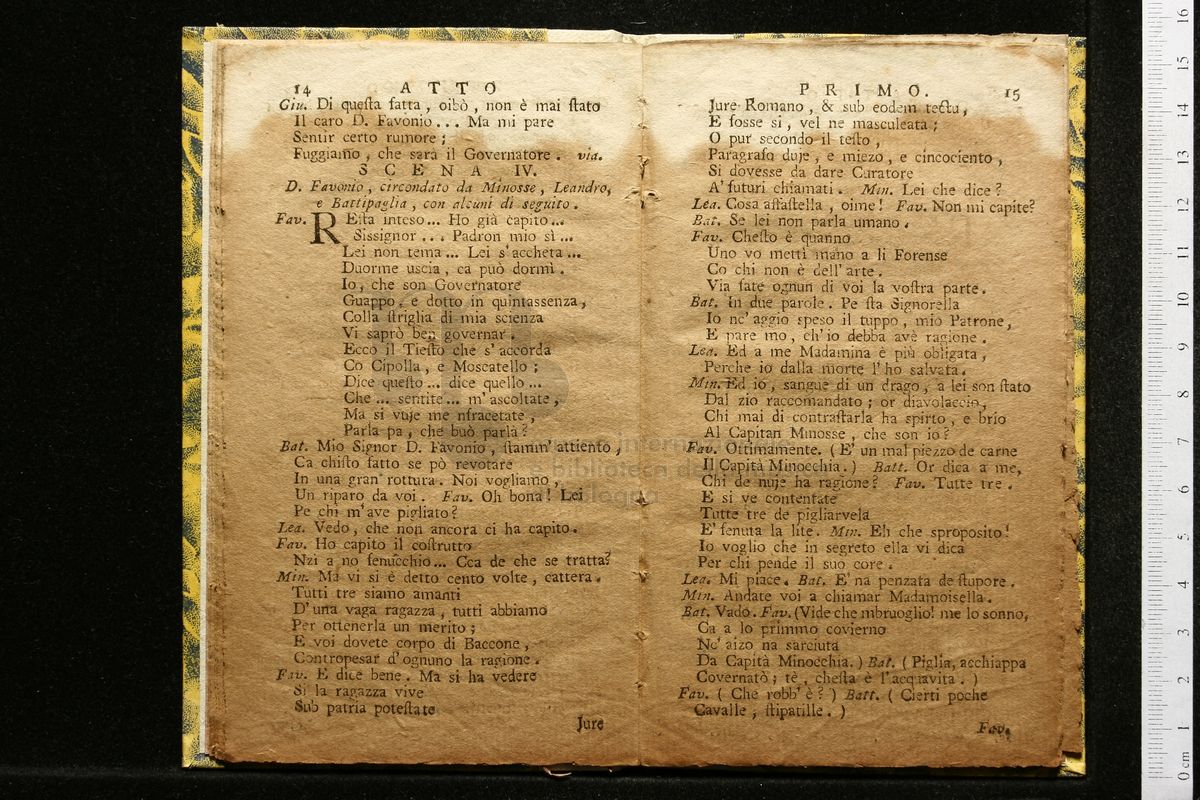 14 ATTO
Giu. Di questa fatta, oibò, non è mai stato
Il caro D. Favonio... Ma mi pare
Sentir certo rumore;
Fuggiamo, che sarà il Governatore. via.
SCENA IV.
D. Favonio, circondato da Minosse, Leandro,
e Battipaglia, con alcuni di seguito.
Fav. REsta inteso... Ho già capito...
Sissignor... Padron mio sì...
Lei non tema... Lei s'accheta...
Duorme uscia, ca può dormì.
Io, che son Governatore
Guappo, e dotto in quintassenza,
Colla striglia di mia scienza
Vi saprò ben governar.
Ecco il Tiesto che s'accorda
Co Cipolla, e Moscatello;
Dice questo... dice quello...
Che... sentite... m'ascoltate,
Ma si vuje me nfracetate,
Parla pa, che buò parlà?
Bat. Mio Signor D. Favonio, stamm'attiento,
Ca chisto fatto se pò revotare
In una gran' rottura. Noi vogliamo,
Un riparo da voi. Fav. Oh bona! Lei
Pe chi m'ave pigliato?
Lea. Vedo, che non ancora ci ha capito.
Fav. Ho capito il costrutto
Nzi a no fenucchio... Cca de che se tratta?
Min. Ma vi si è detto cento volte, cattera.
Tutti tre siamo amanti
D'una vaga ragazza, tutti abbiamo
Per ottenerla un merito;
E voi dovete corpo di Baccone,
Contropesar d'ognuno la ragione.
Fav. E dice bene. Ma si ha vedere
Si la ragazza vive
Sub patria potestate
Jure
PRIMO. 15
Jure Romano, & sub eodem tectu,
E fosse si, vel ne masculeata;
O pur secondo il testo,
Paragrafo duje, e miezo, e cincociento,
Si dovesse da dare Curatore
A' futuri chiamati. Min. Lei che dice?
Lea. Cosa affastella, oime! Fav. Non mi capite?
Bat. Se lei non parla umano.
Fav. Chesto è quanno
Uno vo metti mano a li Forense
Co chi non è dell'arte.
Via fate ognun di voi la vostra parte.
Bat. In due parole. Pe sta Signorella
Io nc'aggio speso il tuppo, mio Patrone,
E pare mo, ch'io debba avè ragione.
Lea. Ed a me Madamina è più obligata,
Perche io dalla morte l'ho salvata.
Min. Ed io, sangue di un drago, a lei son stato
Dal zio raccomandato; or diavolaccio,
Chi mai di contrastarla ha spirto, e brio
Al Capitan Minosse, che son io?
Fav. Ottimamente. (E' un mal piezzo de carne
Il Capità Minocchia.) Batt. Or dica a me,
Chi de nuje ha ragione? Fav. Tutte tre.
E si ve contentate
Tutte tre de pigliarvela
E' fenuta la lite. Min. Eh che sproposito!
Io voglio che in segreto ella vi dica
Per chi pende il suo core.
Lea. Mi piace. Bat. E' na penzata de stupore.
Min. Andate voi a chiamar Madamoisella.
Bat. Vado. Fav. (Vide che mbruoglio! me lo sonno,
Ca a lo primmo covierno
Nc'aizo na sarciuta
Da Capità Minocchia.) Bat. (Piglia, acchiappa
Covernatò; tè, chesta è l'acquavita.)
Fav. (Che robb'è?) Batt. (Cierti poche
Cavalle, stipatille.)
Fav.
0 cm 1 2 3 4 5 6 7 8 9 10 11 12 13 14 15 16